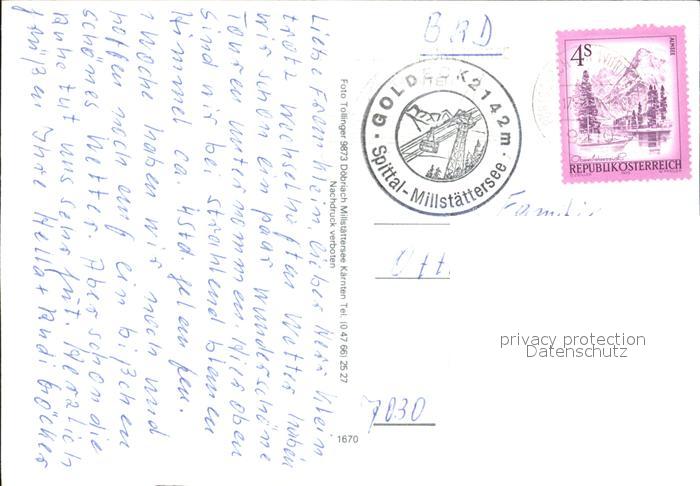 Liebe Frau Klein, lieber Herr Klein
trotz wechselhaften Wetter haben
wir schon ein paar wunderschöne
Touren unternommen. Hier oben
sind wir bei strahlend blauen
Himmel ca 4std gelaufen.
1 Woche haben wir noch und
hoffen noch auf ein bißchen
schönes Wetter. Aber schon die
Ruhe tut uns sehr gut. Herzlich
grüßen Ihre Hella +
Foto Tollinger 9873 Döbriach Millstättersee Kärnten Tel. (0 47 66) 25 27
Nachdruck verboten
1670
BRD
GOLDECK 2142m
Spittal-Millstättersee
4S
ALMSEE
REPUBLIK ÖSTERREICH
Familie
Ott
7030
privacy protection
Datenschutz